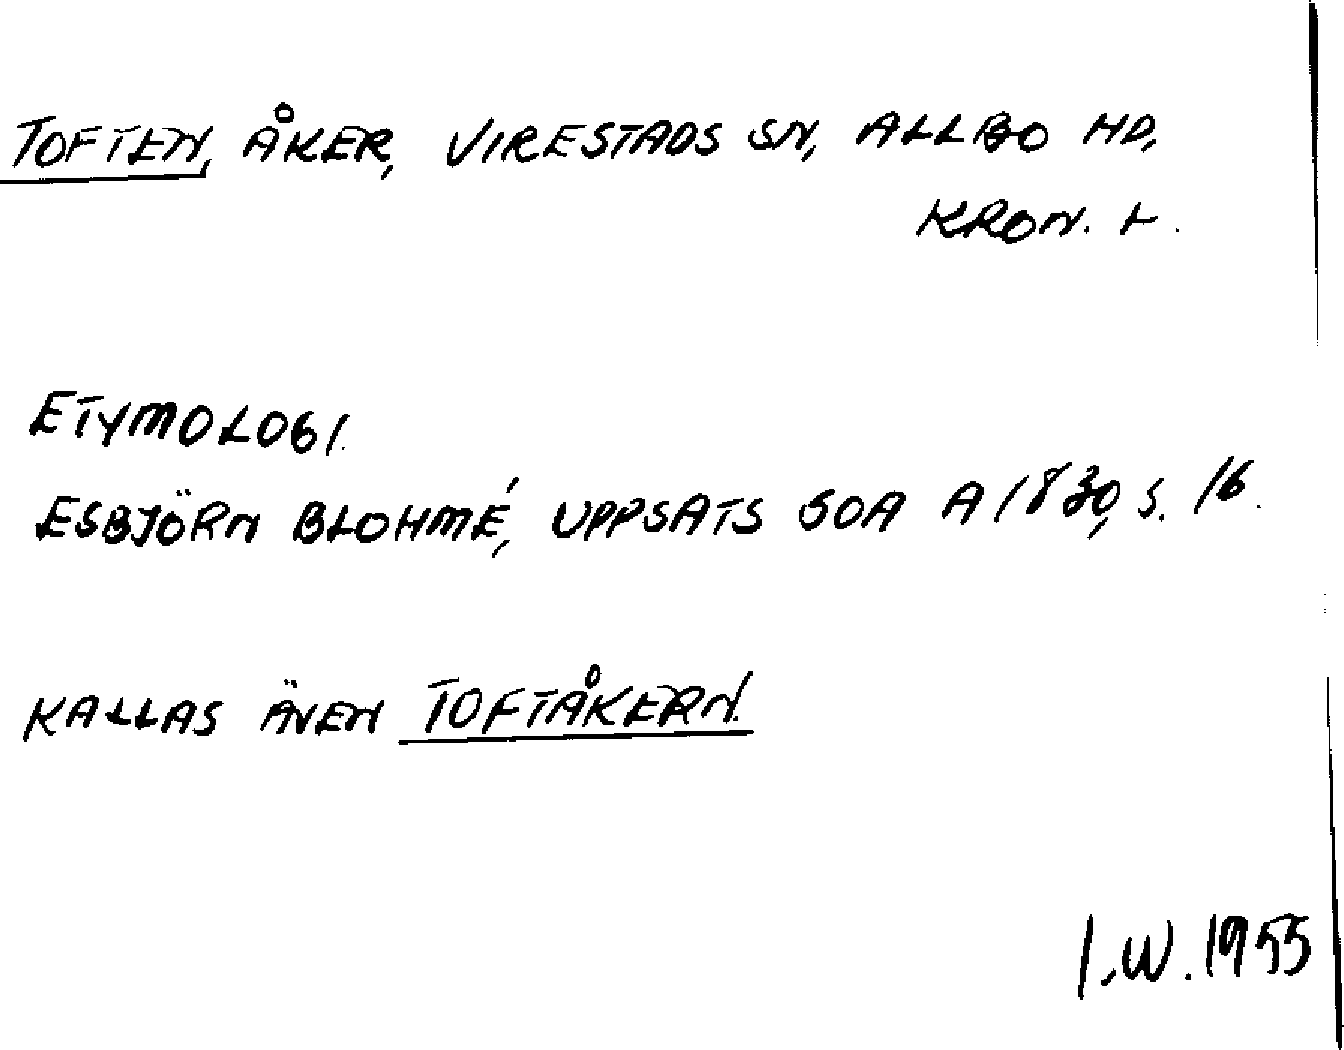 TOFTEN, ÅKER, VIRESTADS SN, ALLBO HD,
KRON. L.
ETYMOLOGI.
ESBJÖRN BLOHMÉ, UPPSATS SOA A 1830, S. 16.
KALLAS ÄVEN TOFTÅKERN.
I.W. 1955